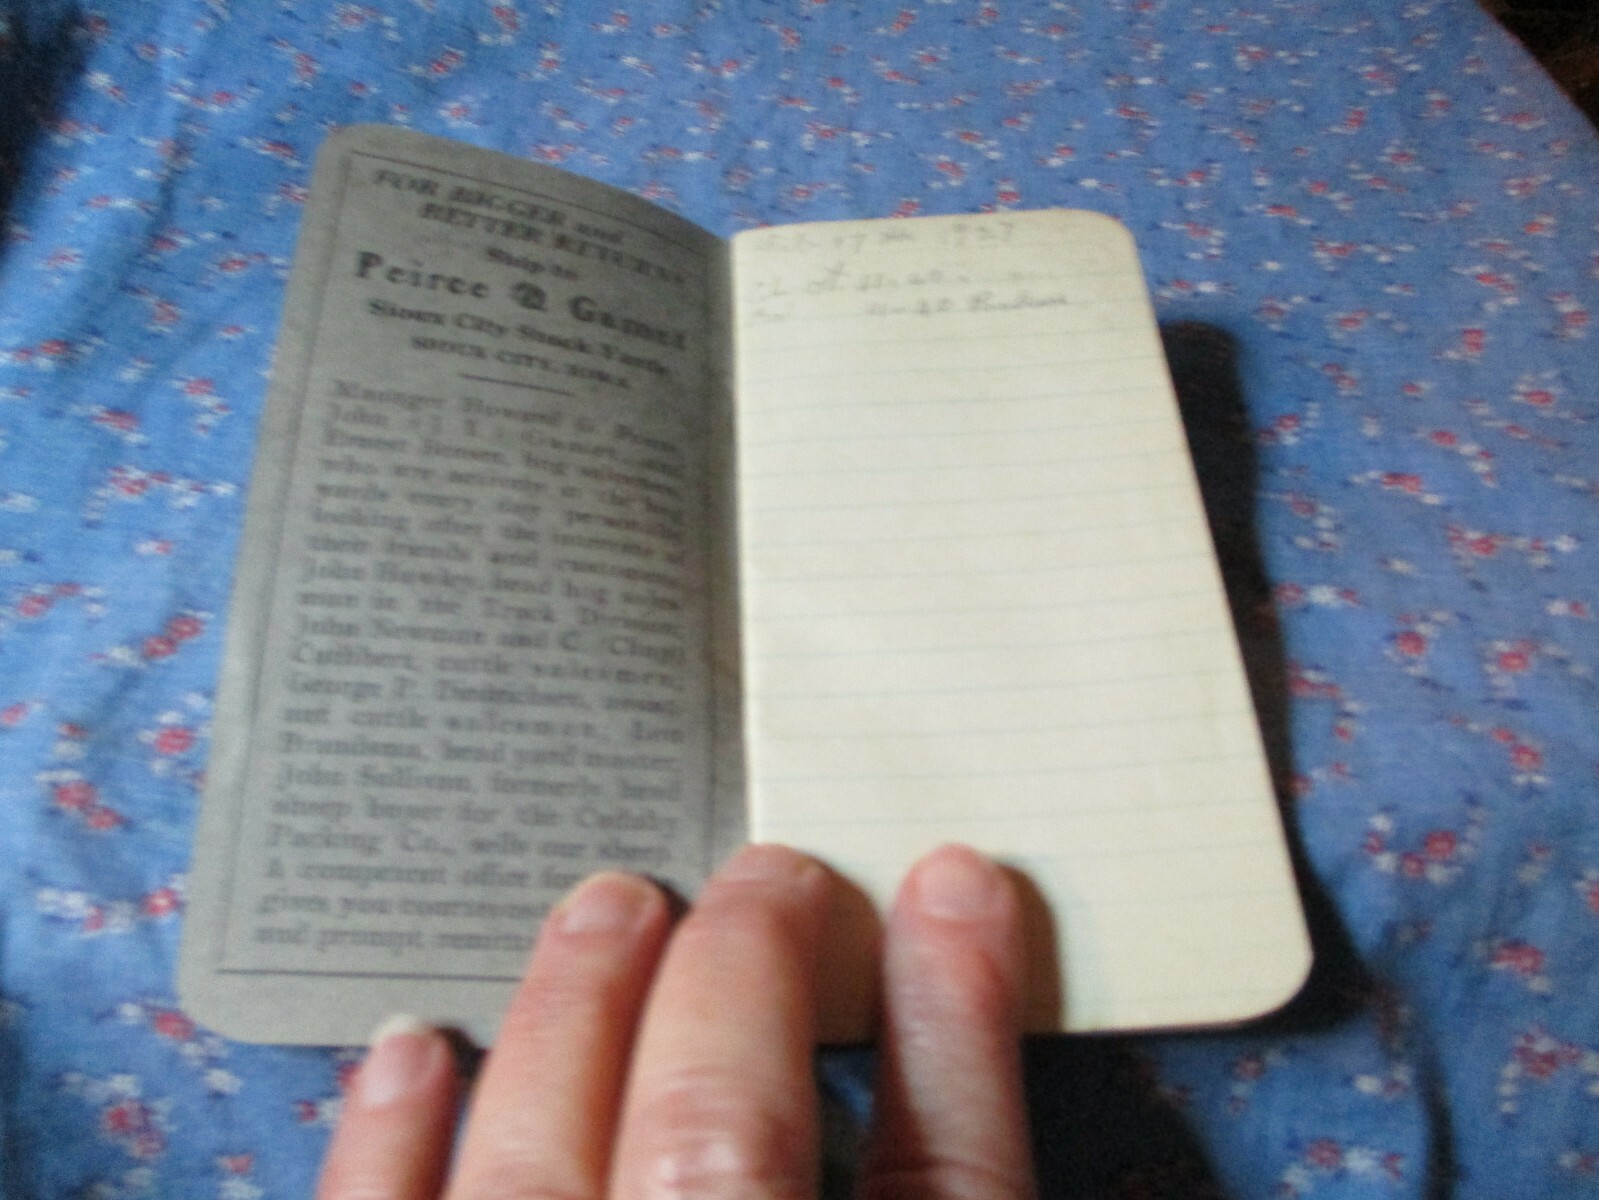 FOR BIGGER and
BETTER RETURNS
Ship to
Peirce & Gamet
Sioux City Stock Yards
SIOUX CITY, IOWA
Manager Howard G. Peirce
John (J. T.) Gamet, and
Ernest Jensen, hog salesmen,
who are actively in the hog
yards every day personally
looking after the interests of
their friends and customers
John Hawley, head hog sales
man in the Truck Division,
John Newman and C.
Cuthbert, cattle salesmen,
George P. Diedrichsen, assist-
ant cattle salesman, Leo
head yard master,
John Sullivan, formerly head
sheep buyer for the Cudahy
Packing Co., sells our sheep.
A competent office
gives you courteous
and prompt
17 1927